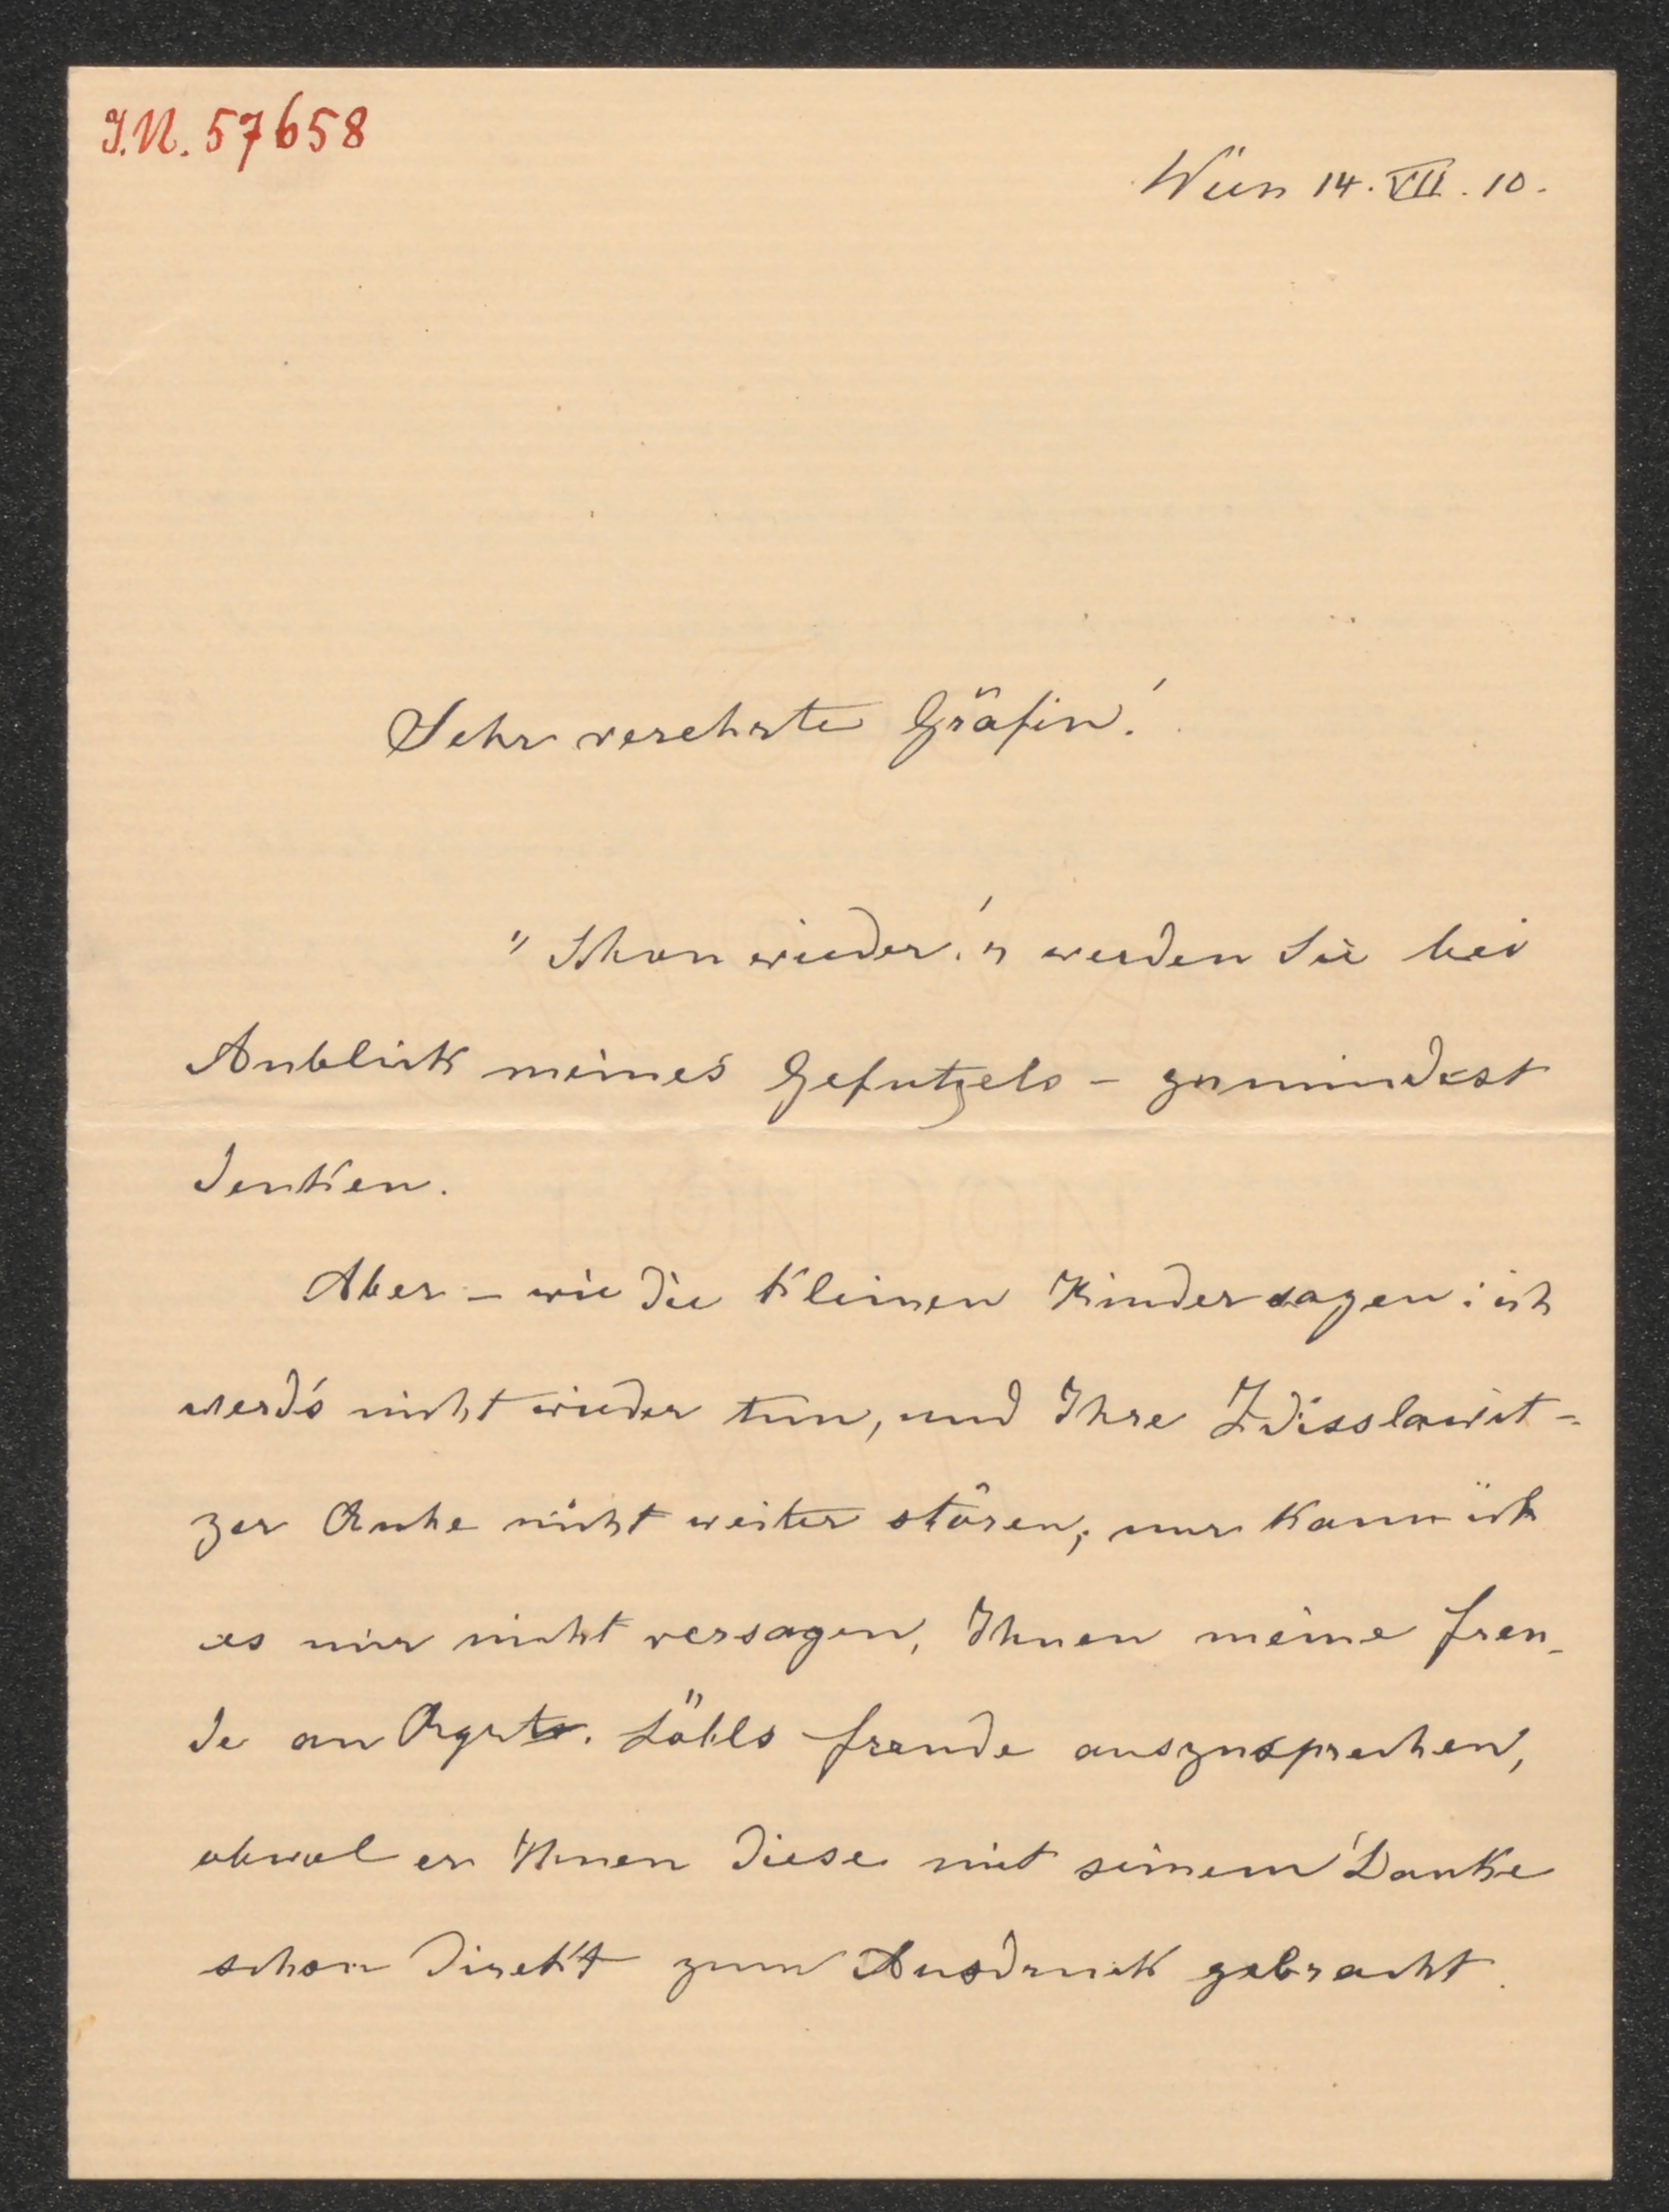 J.N. 57658
Wien 14. VII. 10.
Sehr verehrte Gräfin!
"Schon wieder!" werden Sie bei
Anblick meines Gefutzels – zumindest
denken.
Aber – wie die kleinen Kinder sagen: ich
werd's nicht wieder tun, und Ihre Zdisslawit-
zer Ruhe nicht weiter stören; nur kann ich
es mir nicht versagen, Ihnen meine Freu-
de an Löhls Freude auszusprechen,
obwol er Ihnen diese mit seinem Danke
schon direkt zum Ausdruck gebracht.